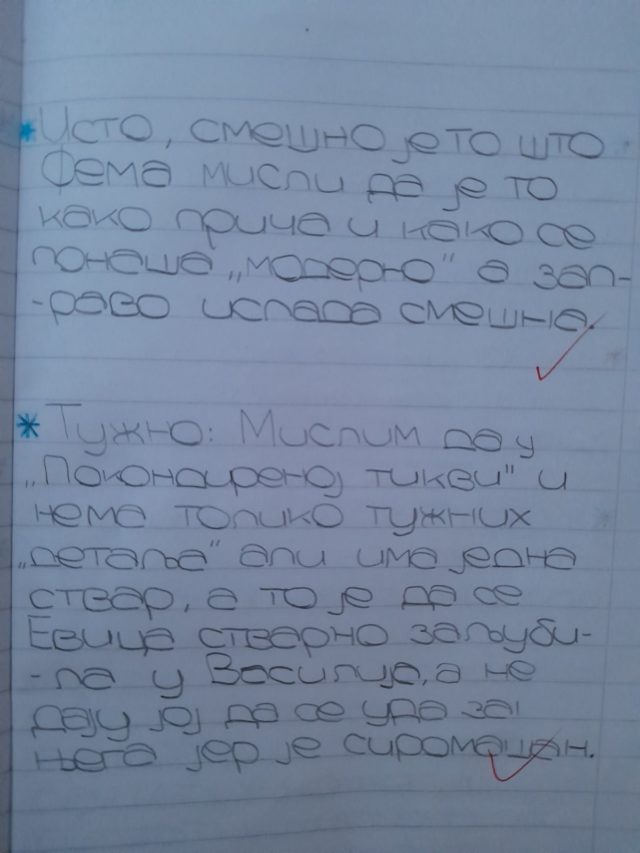 *Исто, смешно је то што
Фема мисли да је то
како прича и како се
понаша „модерно“ а зап-
-раво испада смешна.
*Тужно: Мислим да у
„Покондиреној тикви“ и
нема толико тужних
„детаља“ али има једна
ствар, а то је да се
Евица стварно заљуби-
-ла у Василија, а не
дају јој да се уда за
њега јер је сиромашан.